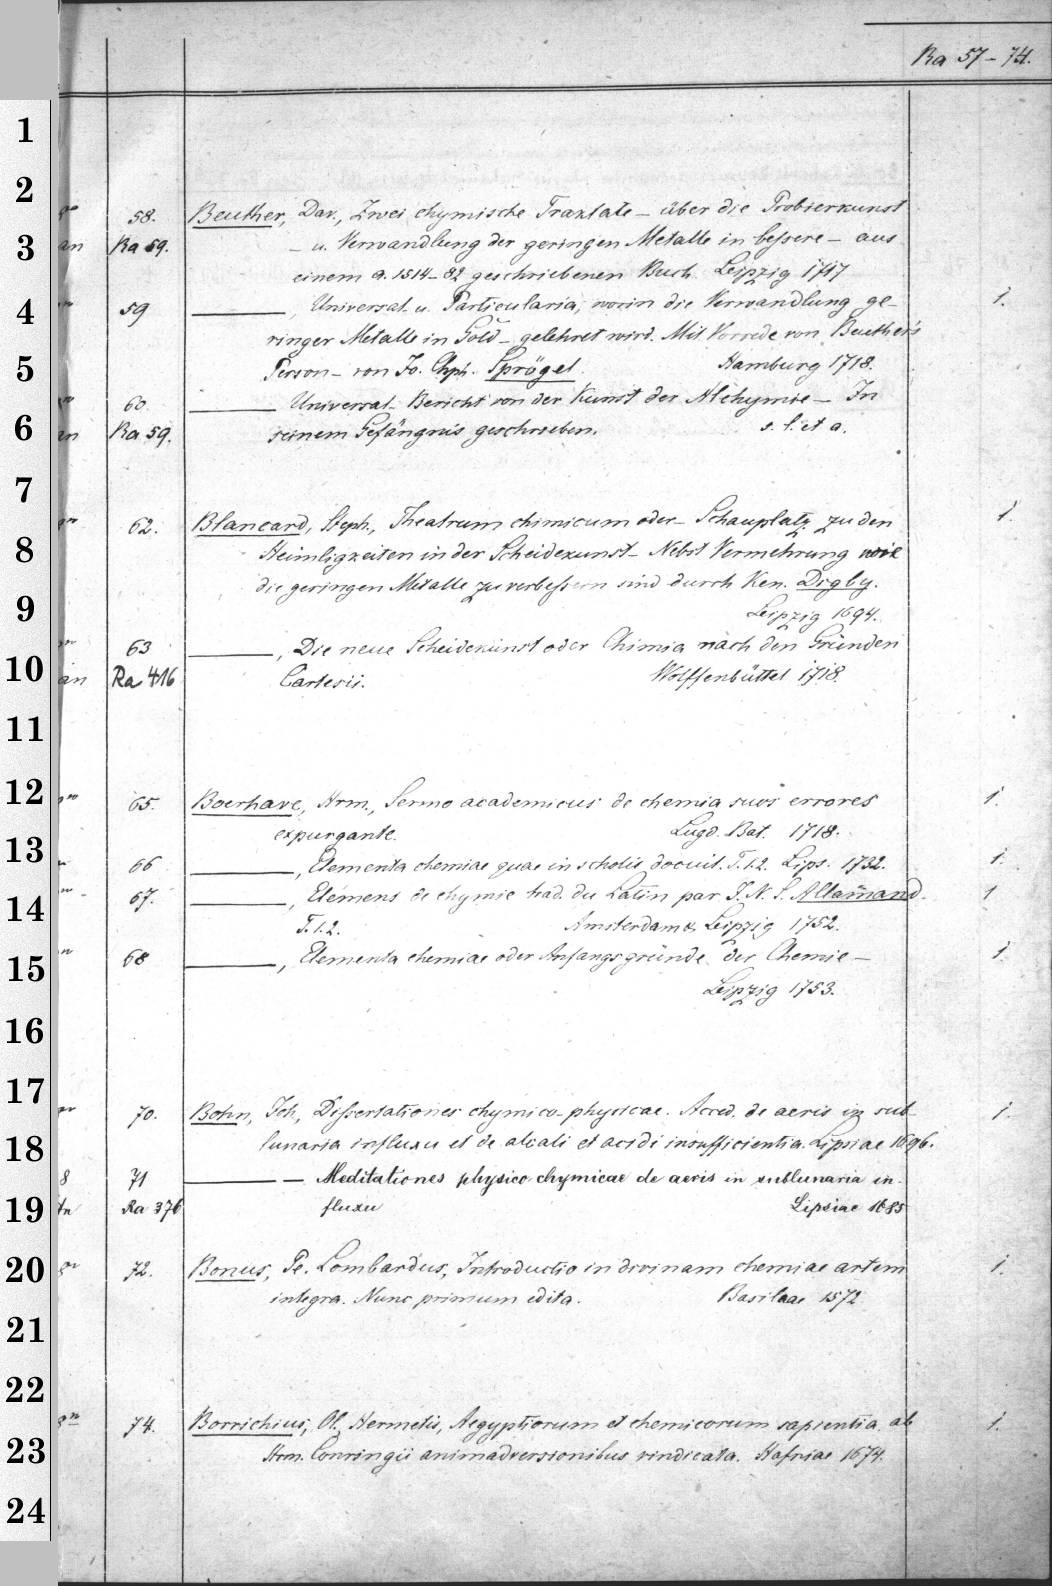 Ra 57-74.
58. Beuther, Dav., Zwei chymische Traktate - über die Probierkunst
Ra 59. - u. Verwandlung der geringen Metalle in beßere - aus
einem a. 1514-82 geschriebenen Buch. Leipzig 1717
59 ———, Universal u. Particularia, worin die Verwandlung ge- 1.
ringer Metalle in Gold - gelehret wird. Mit Vorrede von Beuther's
Person - von Jo. Chph. Sprögel. Hamburg 1718.
60 ——— Universal-Bericht von der Kunst der Alchymie - In
Ra 59. seinem Gefängnis geschrieben. s. l. et a.
62. Blancard, Steph., Theatrum chimicum oder - Schauplatz zu den 1.
Heimligkeiten in der Scheidekunst - Nebst Vermehrung wie
die geringen Metalle zu verbeßern sind durch Ken. Digby.
Leipzig 1694.
63 ———, Die neue Scheidekunst oder Chimia nach den Gründen
Ra 416 Cartesii. Wolffenbüttel 1718.
65. Boerhave, Hrm., Sermo academicus de chemia suos errores 1.
expurgante. Lugd. Bat. 1718.
66 ———, Elementa chemiae quae in scholis docuit. T. 1.2. Lips. 1732. 1.
67. ———, Elémens de chymie trad. du Latin par J. N. S. Allamand. 1
T. 1.2. Amsterdam & Leipzig 1752.
68 ———, Elementa chemiae oder Anfangsgründe der Chemie - 1.
Leipzig 1753.
70. Bohn, Joh., Dißertationes chymico-physicae. Acced. de aeris in sub- 1.
lunaria influxu et de alcali et acidi insufficientia. Lipsiae 1696.
71 ——— — Meditationes physico chymicae de aeris in sublunaria in-
Ra 376 fluxu Lipsiae 1685
72. Bonus, Pe. Lombardus, Introductio in divinam chemiae artem 1.
integra. Nunc primum edita. Basileae 1572
74. Borrichius, Ol. Hermetis, Aegyptiorum et chemicorum sapientia ab 1.
Hrm. Conringii animadversionibus vindicata. Hafniae 1674.
1
2
3
4
5
6
7
8
9
10
11
12
13
14
15
16
17
18
19
20
21
22
23
24